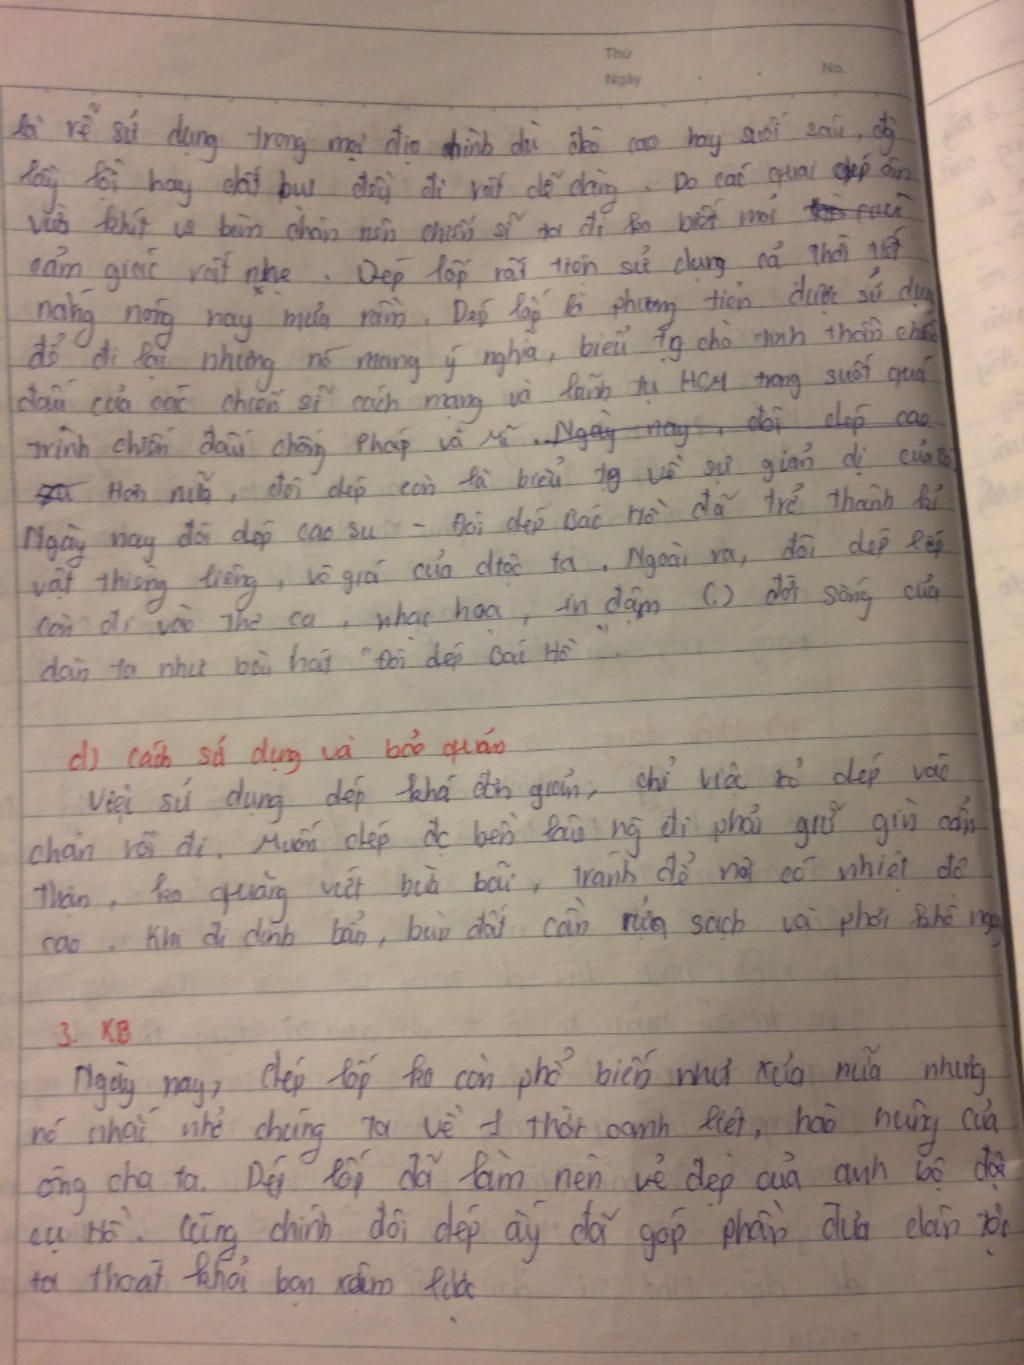 Thứ
Ngày No.
là rễ sử dụng trong mọi địa hình dù đèo cao hay suối sâu,
lầy lội hay đất bụi đều đi rất dễ dàng. Do các quai dép ôm
vừa khít vs bàn chân nên chiến sĩ ta đi ko biết mỏi
cảm giác rất nhẹ. Dép lốp rất tiện sử dụng cả thời tiết
nắng nóng hay mưa rầm. Dép lốp là phương tiện được sử dụng
để đi lại nhưng nó mang ý nghĩa, biểu tg cho tinh thần chiến
đấu của các chiến sĩ cách mạng và lãnh tụ HCM trong suốt quá
trình chiến đấu chống Pháp và Mĩ. Ngày nay, đôi dép cao
Hơn nữa, đôi dép còn là biểu tg về sự giản dị của
Ngày nay đôi dép cao su - Đôi dép Bác Hồ đã trở thành kỉ
vật thiêng liêng, vô giá của dtộc ta. Ngoài ra, đôi dép lốp
còn đi vào thơ ca, nhạc hoạ, in đậm (.) đời sống của
dân ta như bài hát "Đôi dép Bác Hồ".
d) Cách sử dụng và bảo quản
Việc sử dụng dép khá đơn giản, chỉ việc xỏ dép vào
chân rồi đi. Muốn dép đc bền lâu ng đi phải giữ gìn cẩn
thận, ko quăng vứt bừa bãi, tránh để nơi có nhiệt độ
cao. Khi đi dính bẩn, bùn đất cần rửa sạch và phơi khô ngay
3. KB
Ngày nay, dép lốp ko còn phổ biến như xưa nữa nhưng
nó nhắc nhở chúng ta về 1 thời oanh liệt, hào hùng của
ông cha ta. Dép lốp đã làm nên vẻ đẹp của anh bộ đội
cụ Hồ. Cũng chính đôi dép ấy đã góp phần đưa dân tộc
ta thoát khỏi bọn xâm lược